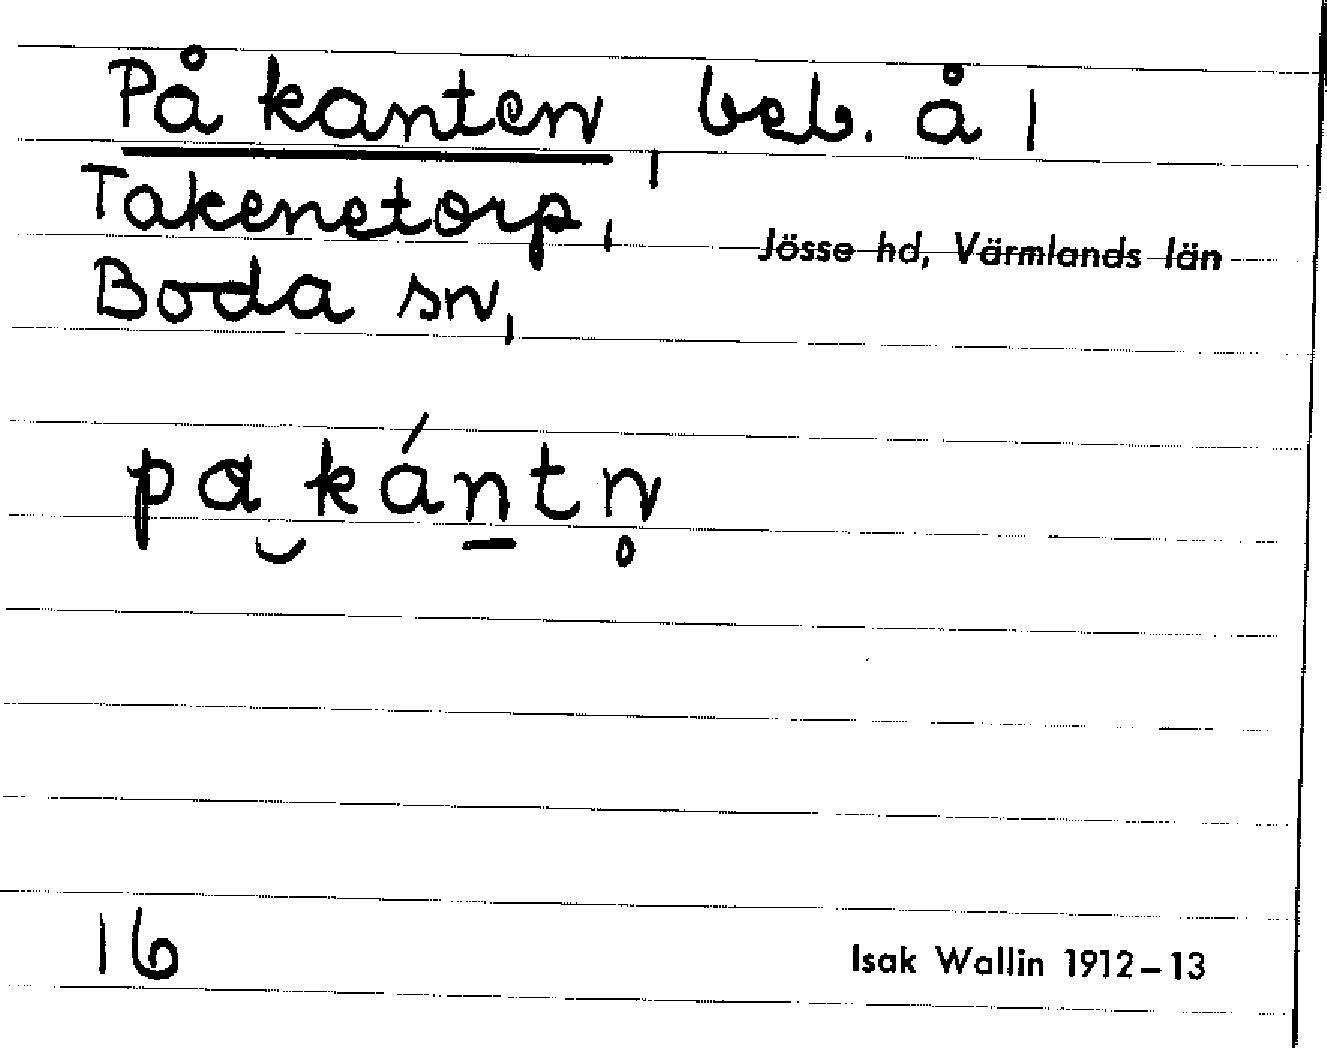 På kanten, beb. å 1
Takenetorp,
Jösse hd, Värmlands län
Boda sn,
pa̮ kán̲tn̥
16
Isak Wallin 1912–13